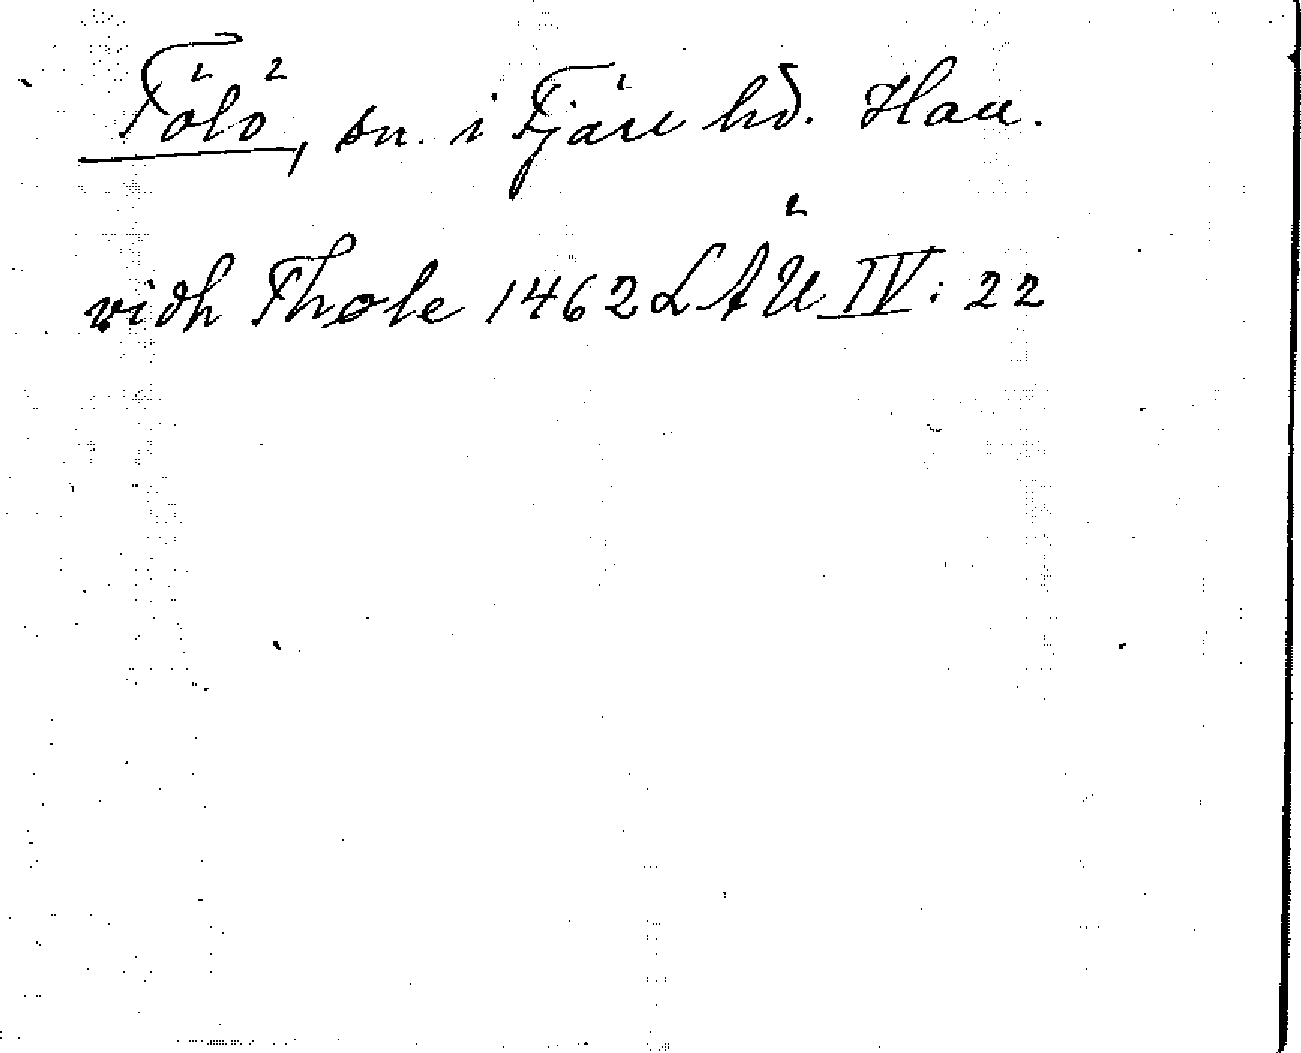 Tölö, sn. i Fjäre hd. Hall.
vidh Thole 1462 LÄU IV: 22